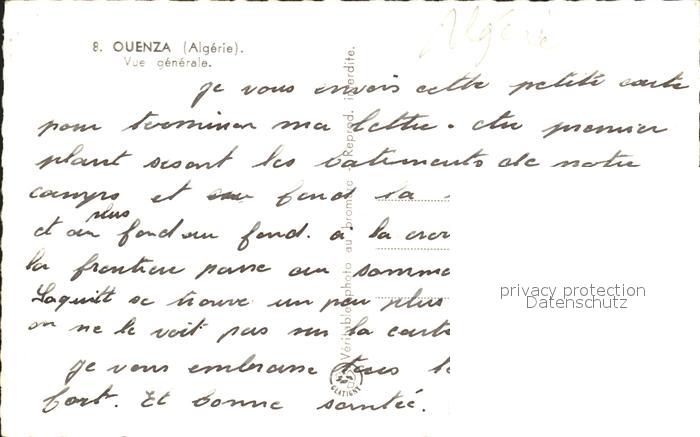 Algérie
8. OUENZA (Algérie).
Vue générale.
Véritable photo au bromure - Reprod. interdite.
je vous envois cette petite carte
pour terminer ma lettre. Au premier
plant sesont les batiments de notre
camps et au fond la
et au plus fond au fond. à la
la frontier passe au somme
Laquitt se trouve un peu plus
on ne le voit pas sur la carte
je vous embrasse tous
fort. Et bonne santée.
CLATIGNY
privacy protection
Datenschutz